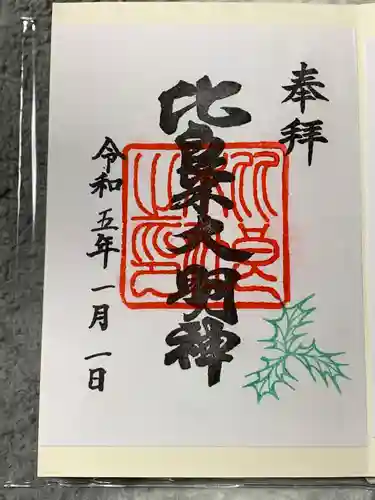 奉拝
比良木大明神
令和五年一月一日